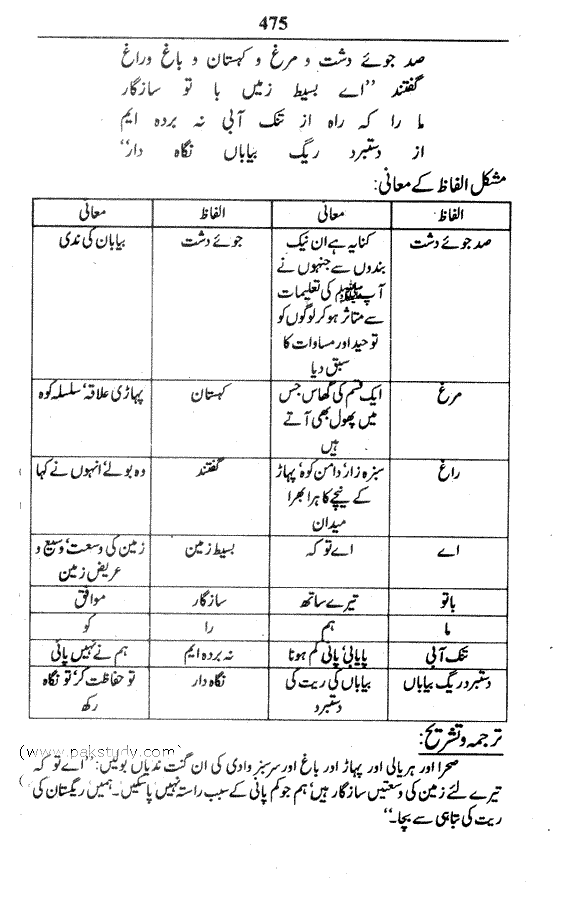 475
صد جوئے دشت و مرغ و کہستان و باغ وراغ
گفتند "اے بسیط زمیں با تو سازگار
ما را کہ راہ از تنک آبی نہ بردہ ایم
از دستبرد ریگ بیاباں نگاہ دار"
مشکل الفاظ کے معانی:
الفاظ معانی الفاظ معانی
صد جوئے دشت کنایہ ہے ان نیک جوئے دشت بیابان کی ندی
بندوں سے جنہوں نے
آپ ﷺ کی تعلیمات
سے متاثر ہوکر لوگوں کو
توحید اور مساوات کا
سبق دیا
مرغ ایک قسم کی گھاس جس کہستان پہاڑی علاقہ' سلسلہ کوہ
میں پھول بھی آتے
ہیں
راغ سبزہ زار' دامن کوہ' پہاڑ گفتند وہ بولے' انہوں نے کہا
کے نیچے کا ہرا بھرا
میدان
اے اے تو کہ بسیط زمین زمین کی وسعت' وسیع و
عریض زمین
باتو تیرے ساتھ سازگار موافق
ما ہم را کو
تنک آبی پایابی' پانی کم ہونا نہ بردہ ایم ہم نے نہیں پائی
دستبرد ریگ بیاباں بیاباں کی ریت کی نگاہ دار تو حفاظت کر' تو نگاہ
دستبرد رکھ
ترجمہ وتشریح:
(www.pakstudy.com)
صحرا اور ہریالی اور پہاڑ اور باغ اور سرسبز وادی کی ان گنت ندیاں بولیں: "اے تو کہ
تیرے لئے زمین کی وسعتیں سازگار ہیں' ہم جو کم پانی کے سبب راستہ نہیں پاسکیں۔ ہمیں ریگستان کی
ریت کی تباہی سے بچا۔"